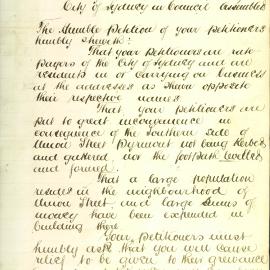 City of Sydney in Council assembled
The Humble Petition of your petitioners
humbly sheweth:
That your petitioners are rate
payers of the City of Sydney and are
residents in or carrying on business
at the addresses as shown opposite
their respective names.
That your petitioners are
put to great inconvenience in
consequence of the Southern side of
Union Street Pyrmont not being Kerbed
and guttered, nor the footpath levelled
and formed.
That a large population
resides in the neighbourhood of
Union Street and large sums of
money have been expended in
building there
Your Petitioners must
humbly ask that you will cause
relief to be given to their grievance